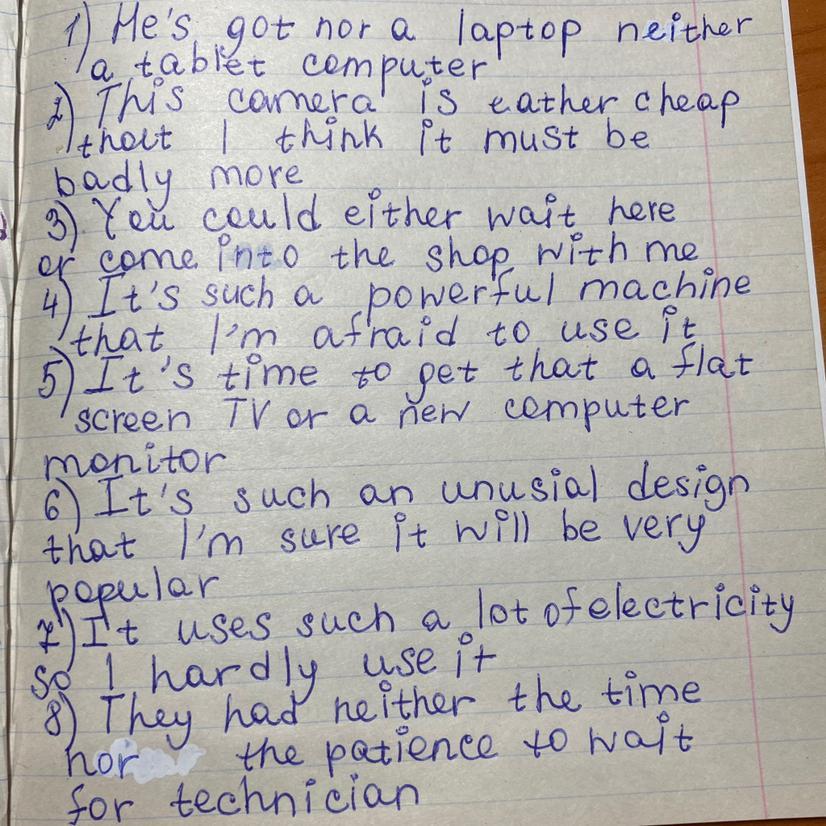 1) He's got nor a laptop neither
a tablet computer
2) This camera is eather cheap
that I think it must be
badly more
3) You could either wait here
or come into the shop with me
4) It's such a powerful machine
that I'm afraid to use it
5) It's time to get that a flat
screen TV or a new computer
monitor
6) It's such an unusial design
that I'm sure it will be very
popular
7) It uses such a lot of electricity
so I hardly use it
8) They had neither the time
nor the patience to wait
for technician